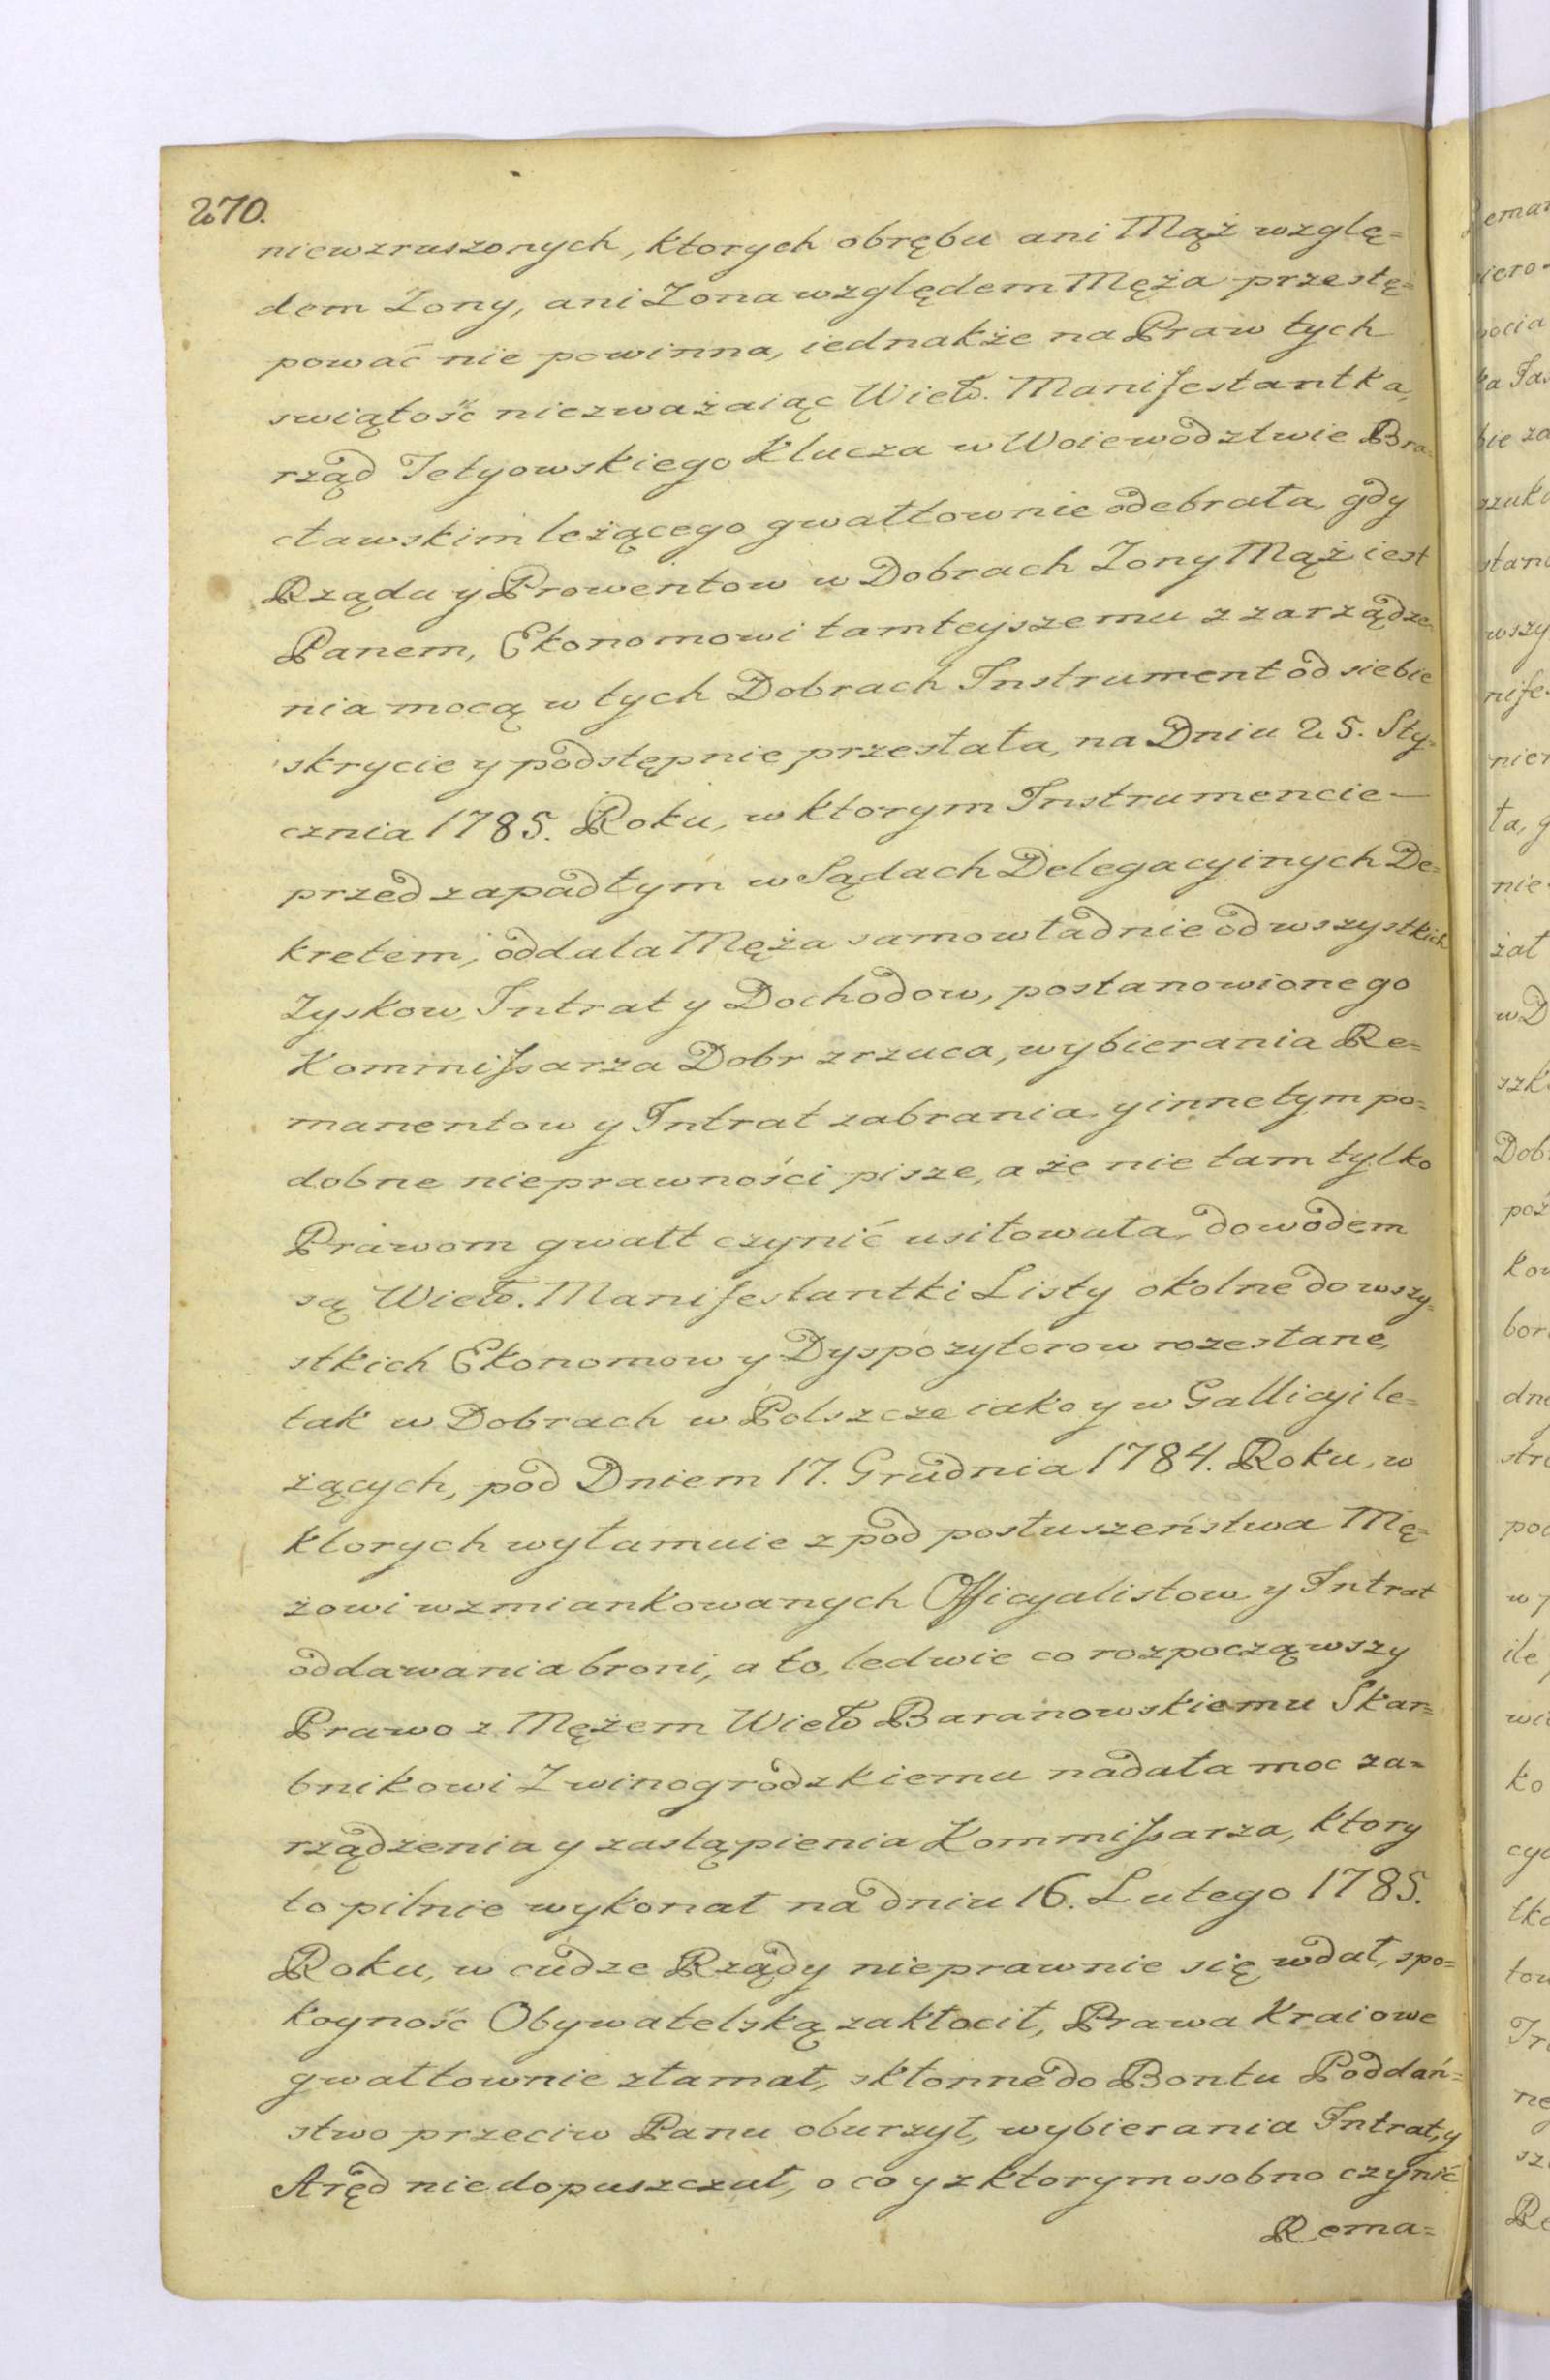 270.
niewzruszonych, ktorych obrębu ani Mąż wzglę=
dem Zony, ani Zona względem Męża przestę=
pować nie powinna, iednakże na Praw tych
swiątość niezważaiąc Wiel. Manifestantka,
rząd Tetyowskiego Klucza w Woiewodztwie Bra=
cławskim leżącego gwałtownie odebrała, gdy
Rządu y Prowentow w Dobrach Zony Mąż iest
Panem, Ekonomowi tamteyszemu z zarządze
nia mocą w tych Dobrach Instrument od siebie
skrycie y podstępnie przesłała, na Dniu 25. Sty=
cznia 1785. Roku, w ktorym Instrumencie —
przed zapadłym w Sądach Delegacyinych De=
kretem, oddala Męża samowładnie od wszystkich
Zyskow, Intrat y Dochodow, postanowionego
Kommissarza Dobr zrzuca, wybierania Re=
manentow y Intrat zabrania, y inne tym po=
dobne nieprawności pisze, a że nie tam tylko
Prawom gwałt czynić usiłowała, dowodem
są Wiel. Manifestantki Listy okolne do wszy=
stkich Ekonomow y Dyspozytorow rozesłane,
tak w Dobrach w Polszcze iako y w Gallicyi le=
żących, pod Dniem 17. Grudnia 1784. Roku, w
ktorych wyłamuie z pod posłuszeństwa Mę=
żowi wzmiankowanych Officyalistow y Intrat
oddawania broni, a to, ledwie co rozpocząwszy
Prawo z Mężem Wiel Baranowskiemu Skar=
bnikowi Zwinogrodzkiemu nadała moc za=
rządzenia y zastąpienia Kommissarza, ktory
to pilnie wykonał na dniu 16. Lutego 1785.
Roku, w cudze Rządy nieprawnie się wdał, spo=
koyność Obywatelską zakłocił, Prawa Kraiowe
gwałtownie złamał, skłonne do Bontu Poddań=
stwo przeciw Panu oburzył, wybierania Intrat, y
Aręd niedopuszczał, o co y z ktorym osobno czynić
Rema=